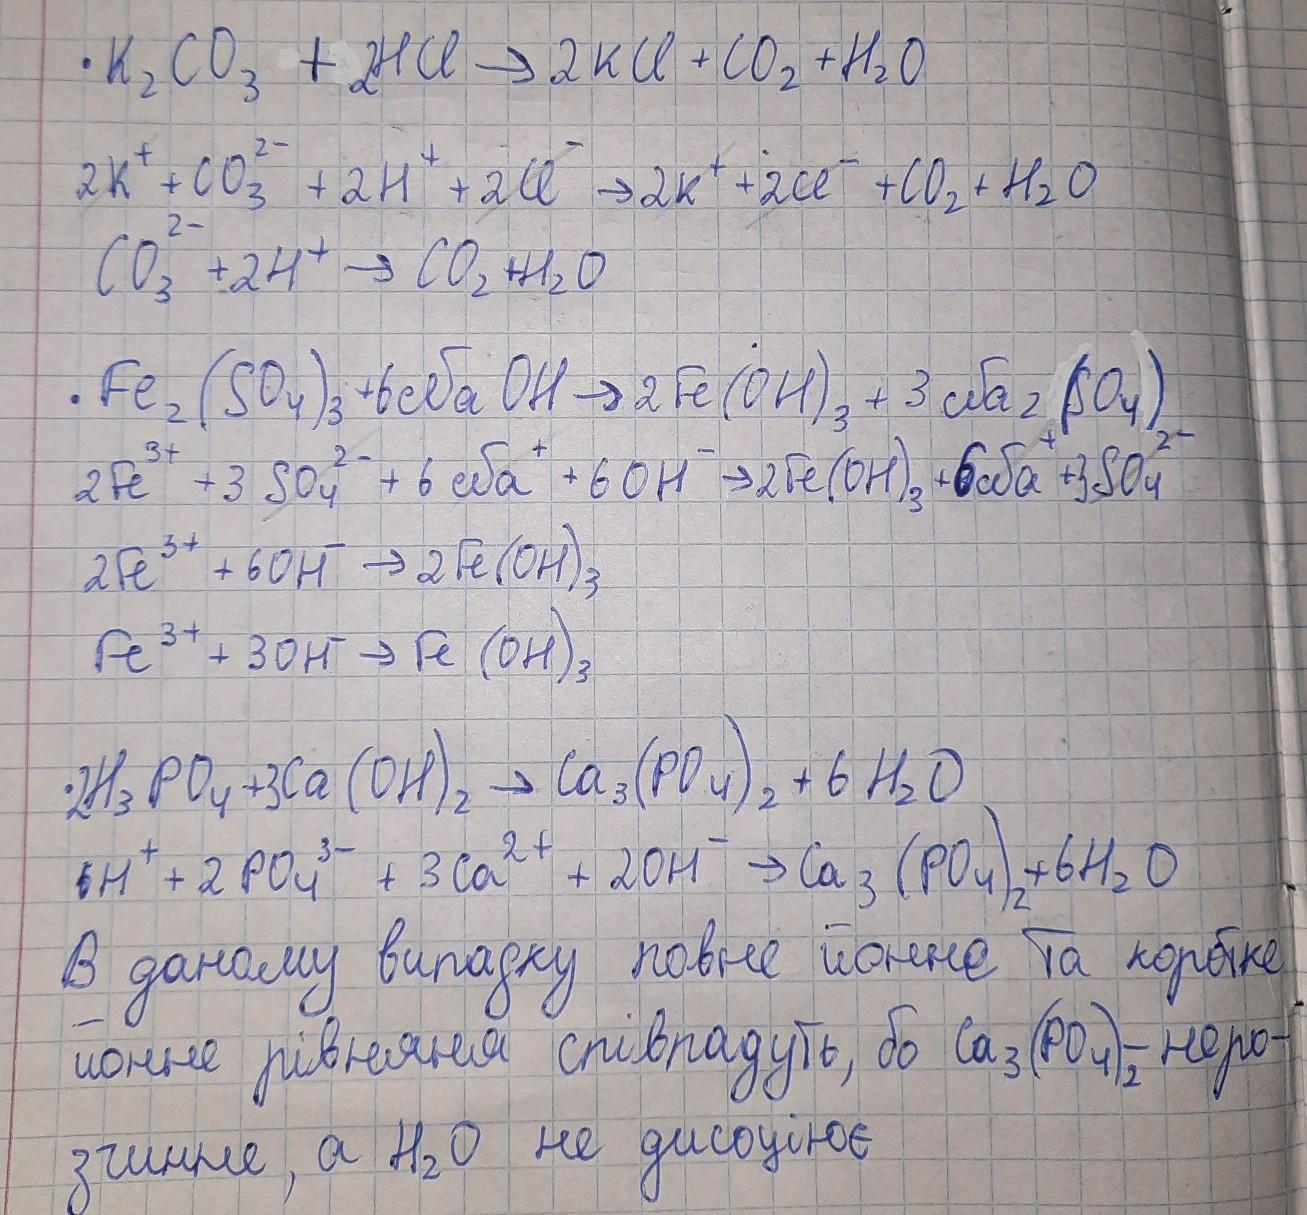 · K₂CO₃ + 2HCl → 2KCl + CO₂ + H₂O
2K⁺ + CO₃²⁻ + 2H⁺ + 2Cl⁻ → 2K⁺ + 2Cl⁻ + CO₂ + H₂O
CO₃²⁻ + 2H⁺ → CO₂ + H₂O
· Fe₂(SO₄)₃ + 6NaOH → 2Fe(OH)₃ + 3Na₂(SO₄)
2Fe³⁺ + 3SO₄²⁻ + 6Na⁺ + 6OH⁻ → 2Fe(OH)₃ + 6Na⁺ + 3SO₄²⁻
2Fe³⁺ + 6OH⁻ → 2Fe(OH)₃
Fe³⁺ + 3OH⁻ → Fe(OH)₃
· 2H₃PO₄ + 3Ca(OH)₂ → Ca₃(PO₄)₂ + 6H₂O
6H⁺ + 2PO₄³⁻ + 3Ca²⁺ + 2OH⁻ → Ca₃(PO₄)₂ + 6H₂O
В даному випадку повне йонне та коротке
йонне рівняння співпадуть, бо Ca₃(PO₄)₂ - неро-
зчинне, а H₂O не дисоціює